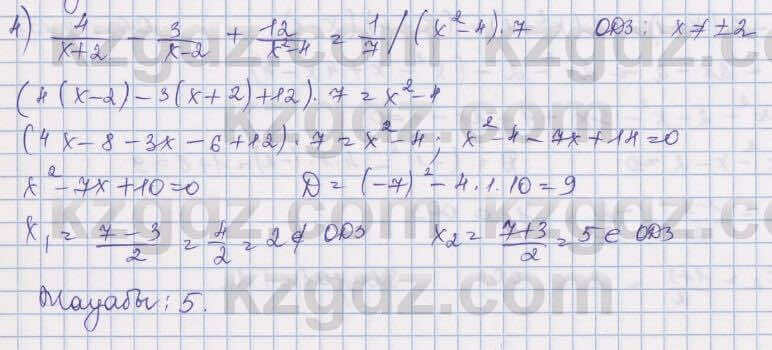 4) 4/(x+2) - 3/(x-2) + 12/(x²-4) = 1/7 / (x²-4)·7 ОДЗ: x≠±2
(4(x-2)-3(x+2)+12)·7=x²-4
(4x-8-3x-6+12)·7=x²-4; x²-4-7x+14=0
x²-7x+10=0 D=(-7)²-4·1·10=9
x₁=(7-3)/2=4/2=2∉ОДЗ x₂=(7+3)/2=5∈ОДЗ
Жауабы: 5.
kzgdz.com